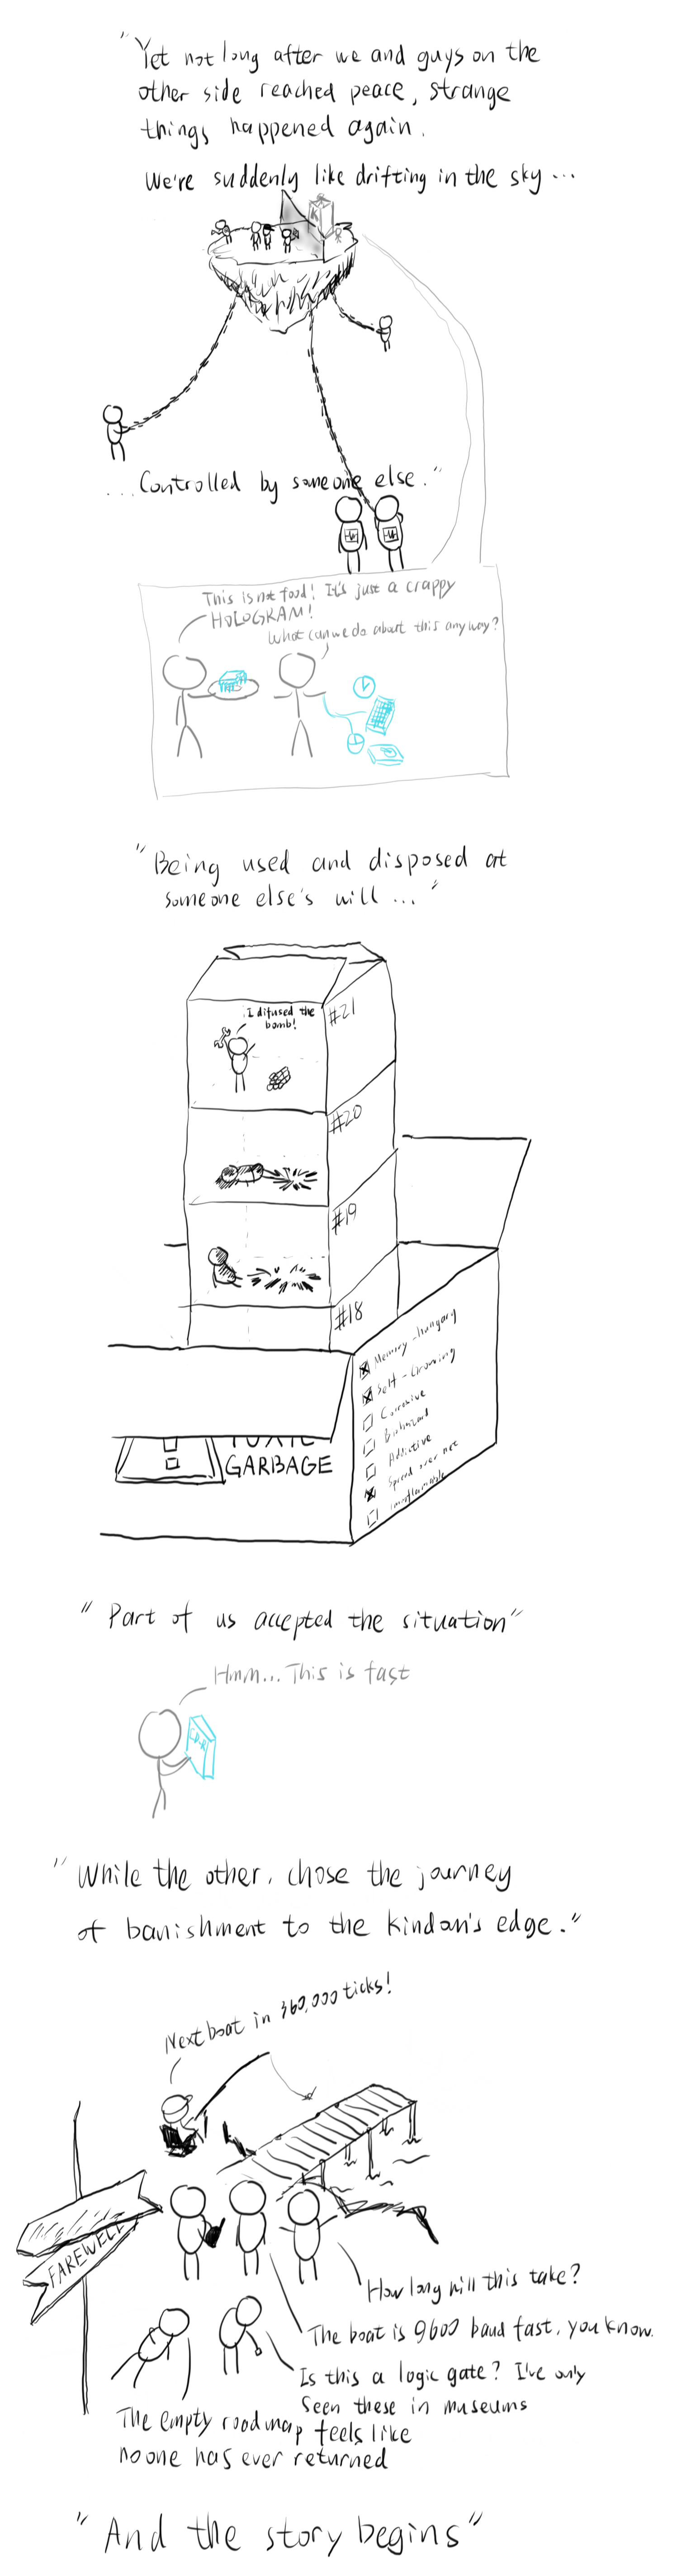 "Yet not long after we and guys on the
other side reached peace, strange
things happened again.
We're suddenly like drifting in the sky...
K
...Controlled by someone else."
This is not food! It's just a crappy
HOLOGRAM!
What can we do about this anyway?
"Being used and disposed at
someone else's will..."
I difused the
bomb!
#21
#20
#19
#18
Memory-hungary
Self-Growing
Corrosive
Biohazard
Addictive
Spread over net
GARBAGE
"Part of us accepted the situation"
Hmm... This is fast
CD-R
"While the other, chose the journey
of banishment to the kindom's edge."
Next boat in 360,000 ticks!
FAREWELL
How long will this take?
The boat is 9600 baud fast, you know.
Is this a logic gate? I've only
seen these in museums
The empty roadmap feels like
no one has ever returned
"And the story begins"